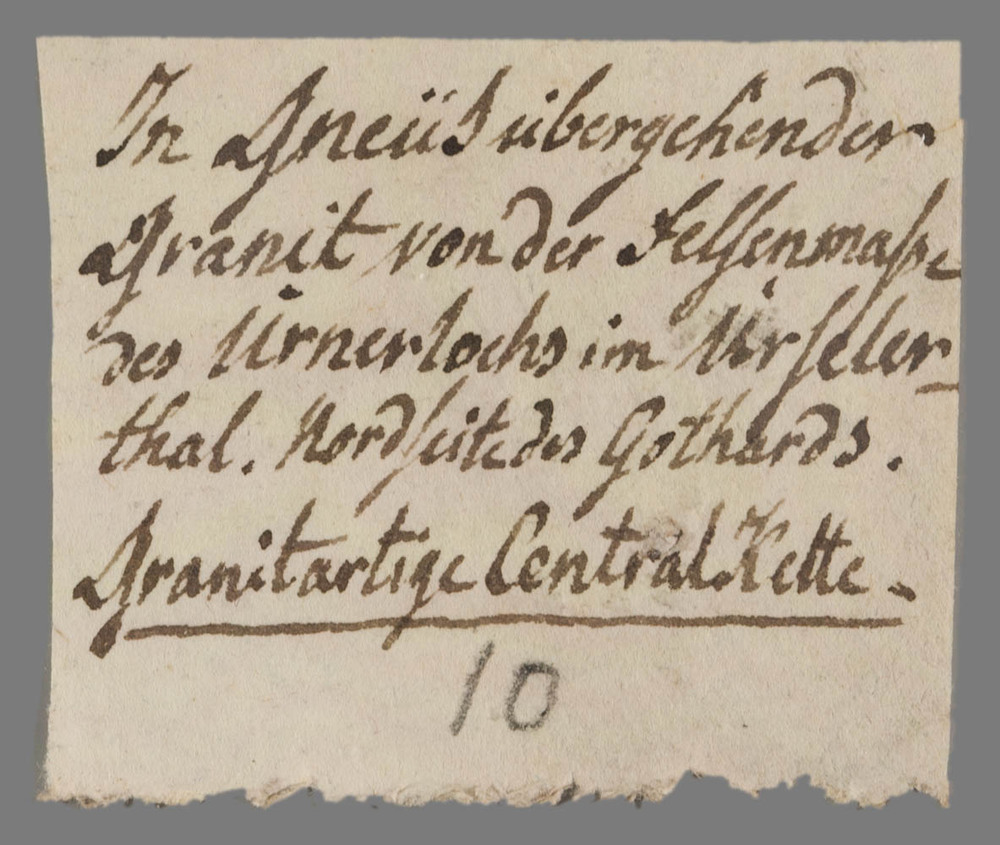 In Gneüs übergehender
Granit von der Felsenmaße
des Urnerlochs im Urseler-
thal. Nordseite des Gothards.
Granitartige Central Kette.
10